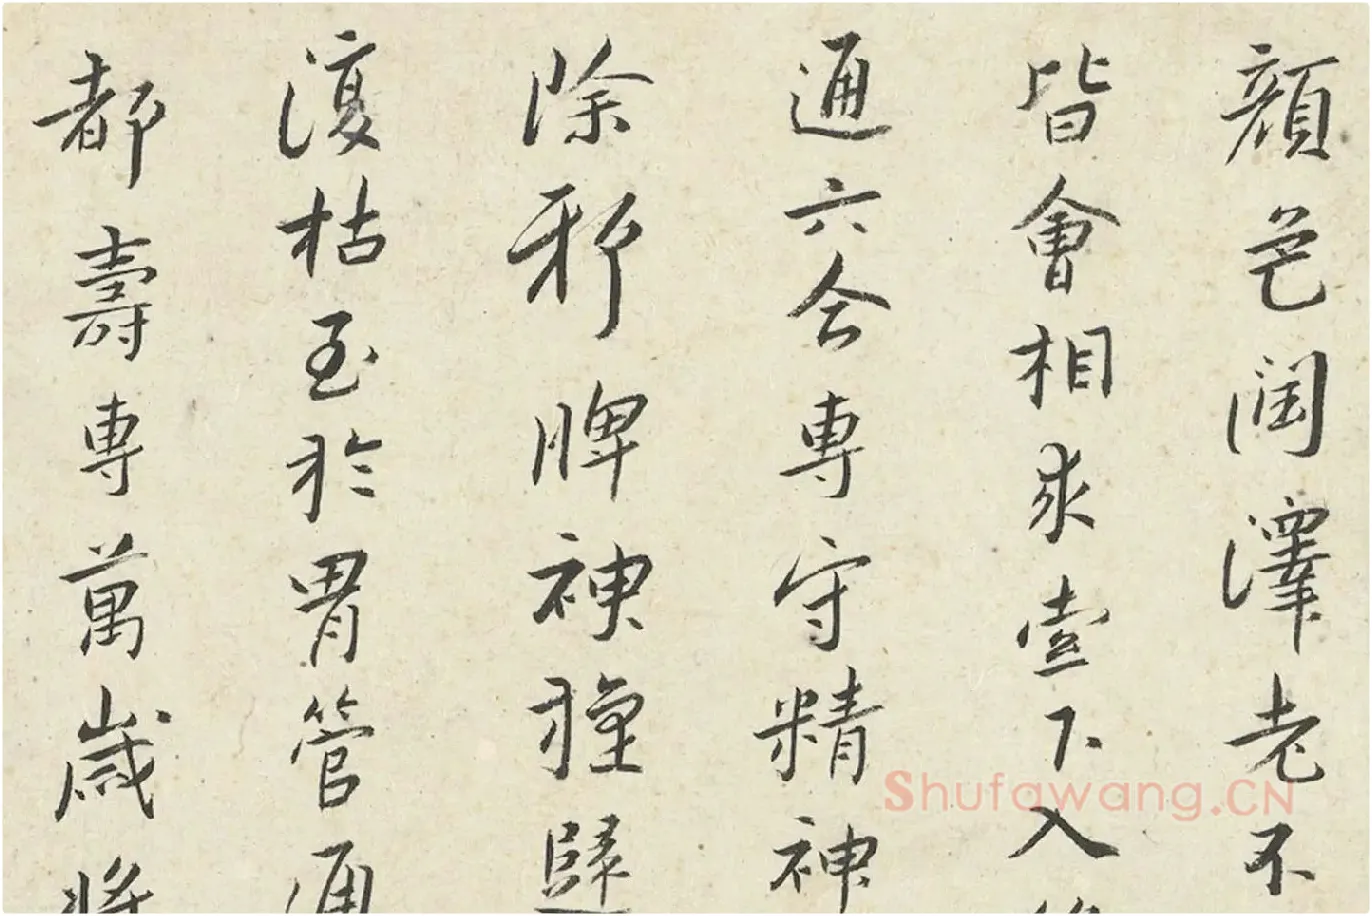 顏色潤澤老不
皆會相求索下入
通六合專守精神
除邪脾神種
復枯至於胃管通
都壽專萬歲將
Shufawang.CN